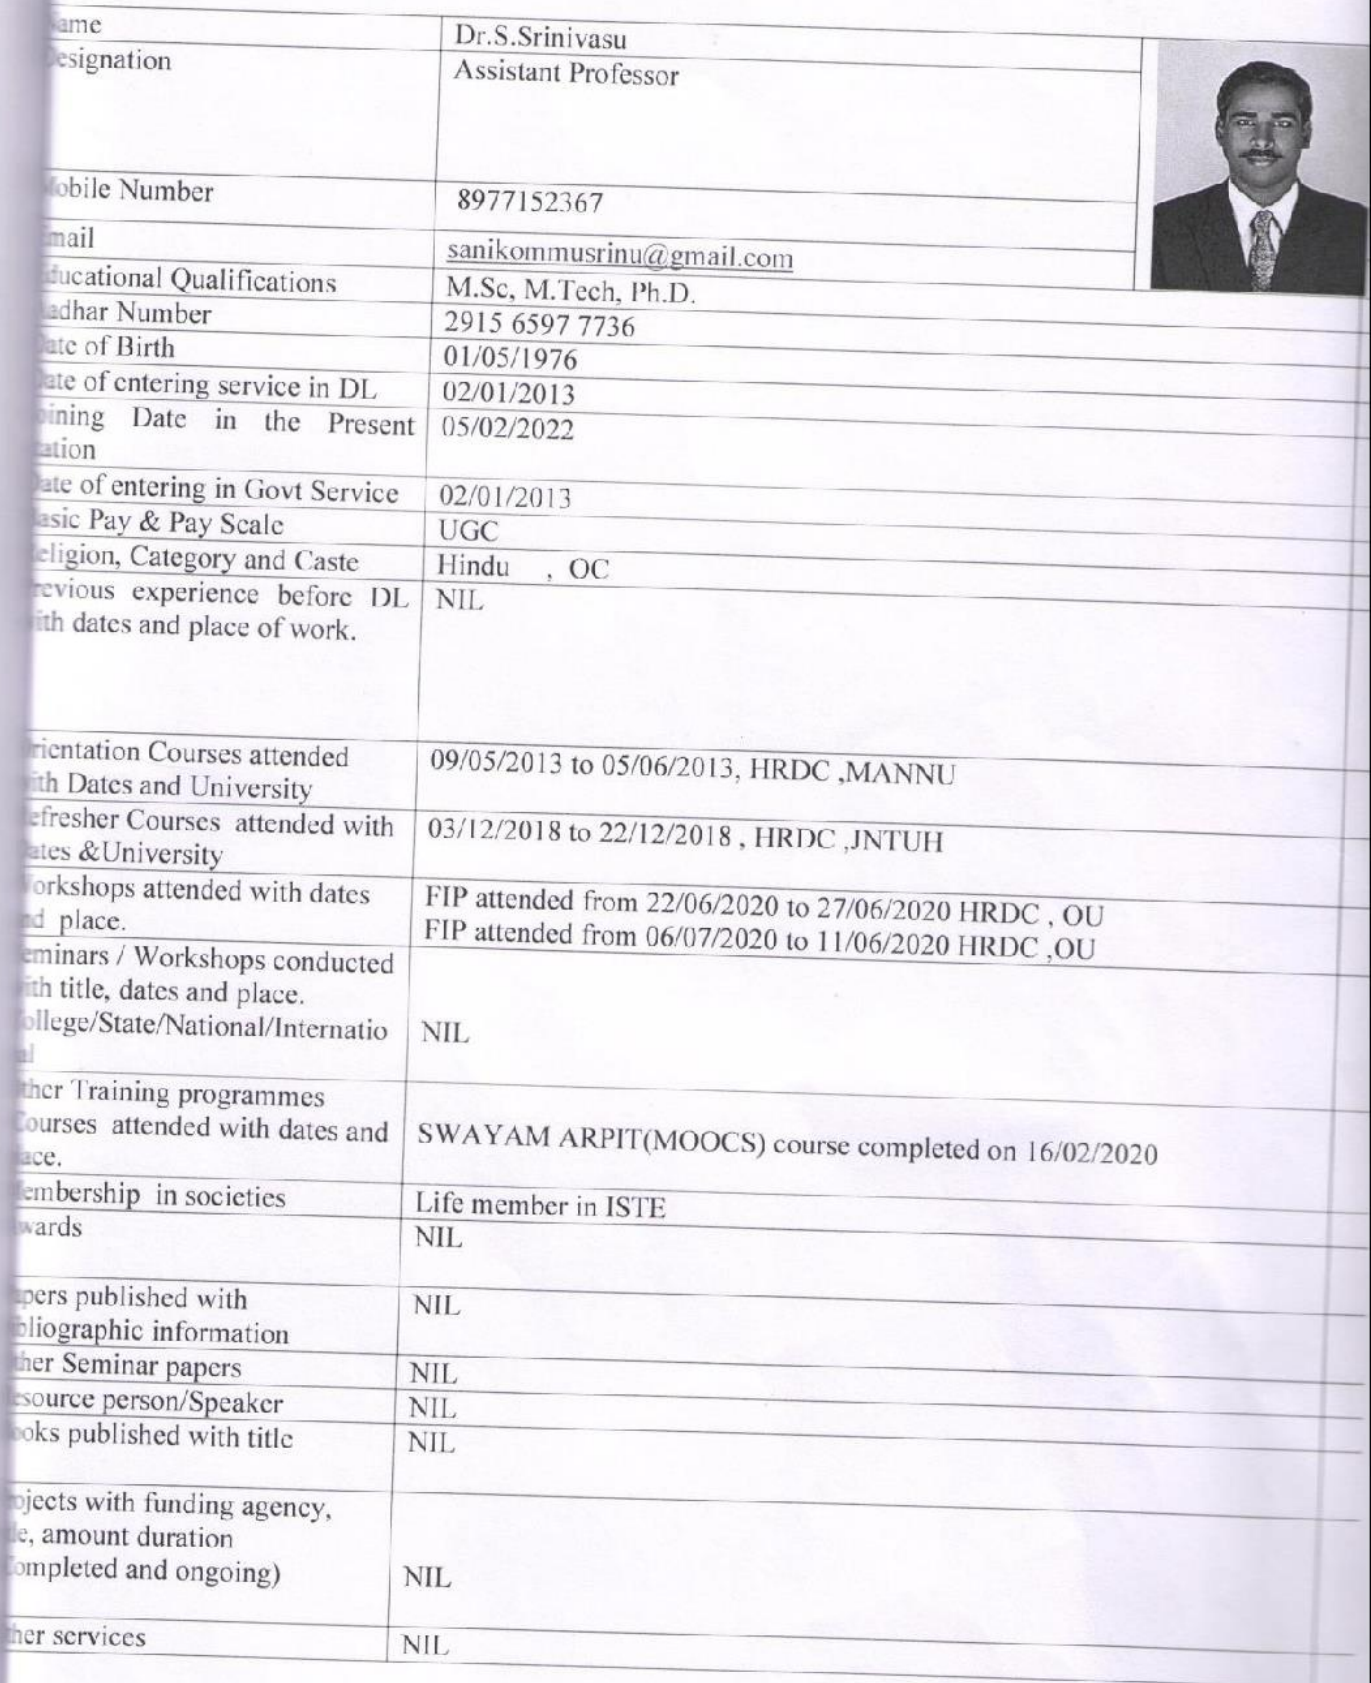 ame Dr.S.Srinivasu
esignation Assistant Professor
obile Number 8977152367
mail sanikommusrinu@gmail.com
ducational Qualifications M.Sc, M.Tech, Ph.D.
adhar Number 2915 6597 7736
ate of Birth 01/05/1976
ate of entering service in DL 02/01/2013
ining Date in the Present 05/02/2022
ation
ate of entering in Govt Service 02/01/2013
asic Pay & Pay Scale UGC
eligion, Category and Caste Hindu , OC
revious experience before DL NIL
ith dates and place of work.
rientation Courses attended 09/05/2013 to 05/06/2013, HRDC ,MANNU
ith Dates and University
efresher Courses attended with 03/12/2018 to 22/12/2018 , HRDC ,JNTUH
ates &University
orkshops attended with dates FIP attended from 22/06/2020 to 27/06/2020 HRDC , OU
nd place. FIP attended from 06/07/2020 to 11/06/2020 HRDC ,OU
eminars / Workshops conducted
ith title, dates and place.
ollege/State/National/Internatio NIL
al
ther Training programmes
ourses attended with dates and SWAYAM ARPIT(MOOCS) course completed on 16/02/2020
ace.
embership in societies Life member in ISTE
wards NIL
pers published with NIL
bliographic information
her Seminar papers NIL
esource person/Speaker NIL
ooks published with title NIL
ojects with funding agency,
le, amount duration
ompleted and ongoing) NIL
her services NIL